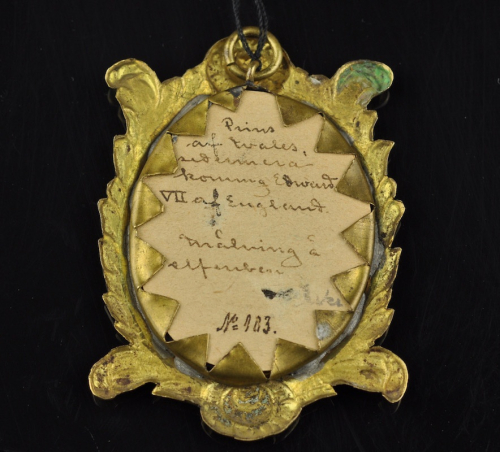 Prins
af Wales,
sedermera
konung Edward
VII af England.
Målning å
elfenben
No 103.